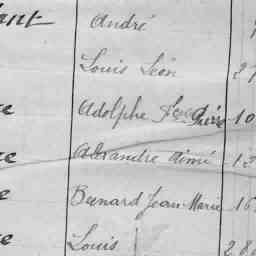 ant André
Louis Léon 2
Adolphe Pierre 10
Alexandre Aimé 1
Bernard Jean Marie 16
Louis 28